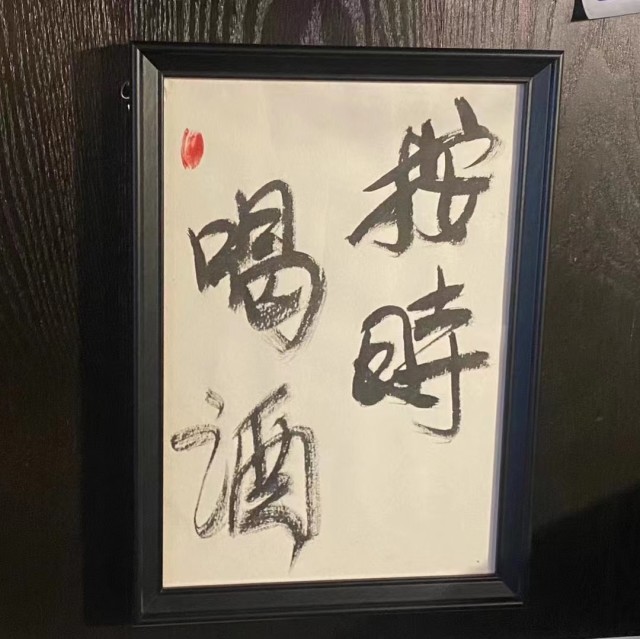 按時
喝酒